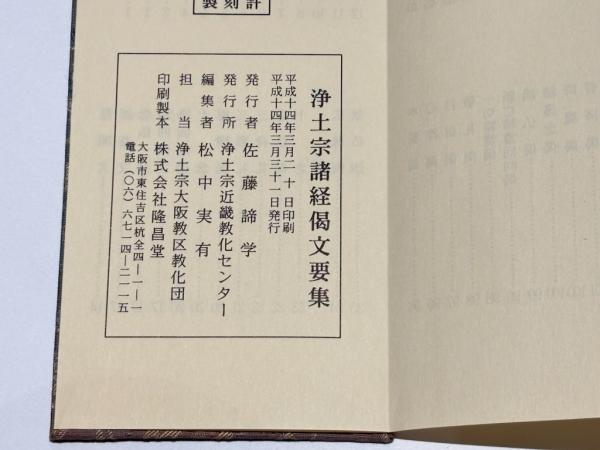 許刻製
浄土宗諸経偈文要集
平成十四年三月二十日印刷
平成十四年三月三十一日発行
発行者 佐藤諦学
発行所 浄土宗近畿教化センター
編集者 松中実有
担当 浄土宗大阪教区教化団
印刷製本 株式会社隆昌堂
大阪市東住吉区杭全四―一―一
電話(〇六)六七一四―二一一五